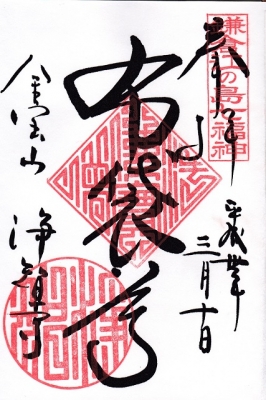 鎌倉江の島七福神
奉拝
平成廿年
三月十日
布袋尊
金宝山
浄智寺